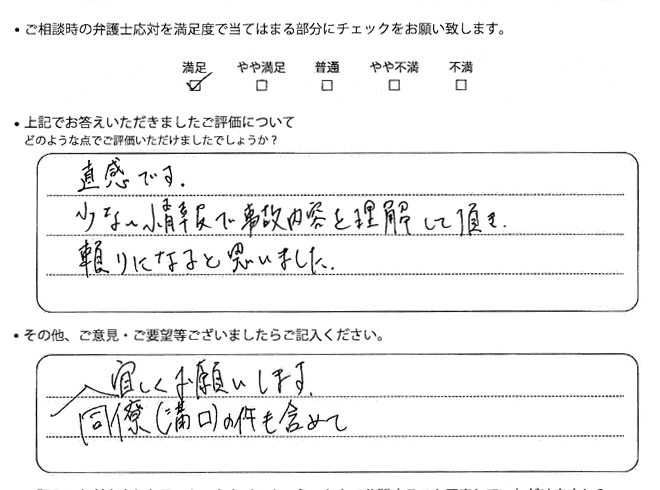 • ご相談時の弁護士応対を満足度で当てはまる部分にチェックをお願い致します。
満足 やや満足 普通 やや不満 不満
• 上記でお答えいただきましたご評価について
どのような点でご評価いただけましたでしょうか？
直感です.
少ない情報で事故内容を理解して頂き.
頼りになると思いました.
• その他、ご意見・ご要望等ございましたらご記入ください。
宜しくお願いします.
同僚(溝口)の件も含めて